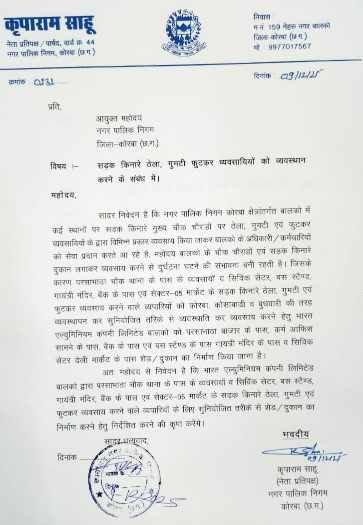 कृपाराम साहू
नेता प्रतिपक्ष / पार्षद, वार्ड क्र. 44
नगर पालिक निगम, कोरबा (छ.ग.)
निवास
म.नं. 159 नेहरू नगर बालको
जिला-कोरबा (छ.ग.)
मो. : 9977017567
क्रमांक 0231
दिनांक 09/12/25
प्रति,
आयुक्त महोदय
नगर पालिक निगम
जिला-कोरबा (छ.ग.)
विषय :- सड़क किनारे ठेला, गुमटी फुटकर व्यवसायियों को व्यवस्थान
करने के संबंध में।
महोदय,
सादर निवेदन है कि नगर पालिक निगम कोरबा क्षेत्रांतर्गत बालको में
कई स्थानों पर सड़क किनारे मुख्य चौक चौराहों पर ठेला, गुमटी एवं फुटकर
व्यवसायियों के द्वारा विभिन्न प्रकार व्यवसाय किया जाकर बालको के अधिकारी/कर्मचारियों
को सेवा प्रदान करते आ रहे है, महोदय बालको के चौक चौराहों एवं सड़क किनारे
दुकान लगाकर व्यवसाय करने से दुर्घटना घटने की संभावना बनी रहती है। जिसके
कारण परसाभाठा चौक थाना के पास के व्यवसायी व सिविक सेंटर, बस स्टैण्ड,
गायंत्री मंदिर, बैंक के पास एवं सेक्टर-05 मार्केट के सड़क किनारे ठेला, गुमटी एवं
फुटकर व्यवसाय करने वाले व्यापारियों को कोरबा, कोसाबाडी व बुधवारी की तरह
व्यवस्थापन कर सुनियोजित तरिके से व्यवस्थाति कर व्यवसाय करने हेतु भारत
एल्युमिनियम कंपनी लिमिटेड बालको को परसाभाठा बाजार के पास, कर्मा आफिस
सामने के पास, बैंक के पास एवं बस स्टैण्ड के पास गायंत्री मंदिर के पास व सिविक
सेंटर डेली मार्केट के पास शेड/दुकान का निर्माण किया जाना है।
अतः महोदय से निवेदन है कि भारत एल्युमिनियम कंपनी लिमिटेड
बालको द्वारा परसाभाठा चौक थाना के पास के व्यवसायी व सिविक सेंटर, बस स्टैण्ड,
गायंत्री मंदिर, बैंक के पास एवं सेक्टर-05 मार्केट के सड़क किनारे ठेला, गुमटी एवं
फुटकर व्यवसाय करने वाले व्यापारियों के लिए सुनियोजित तरीके से शेड/दुकान का
निर्माण करने हेतु निर्देशित करने की कृपा करेंगे।
सादर धन्यवाद,
दिनांक
भवदीय
09/12/25
कृपाराम साहू
(नेता प्रतिपक्ष)
नगर पालिक निगम
कोरबा (छ.ग.)